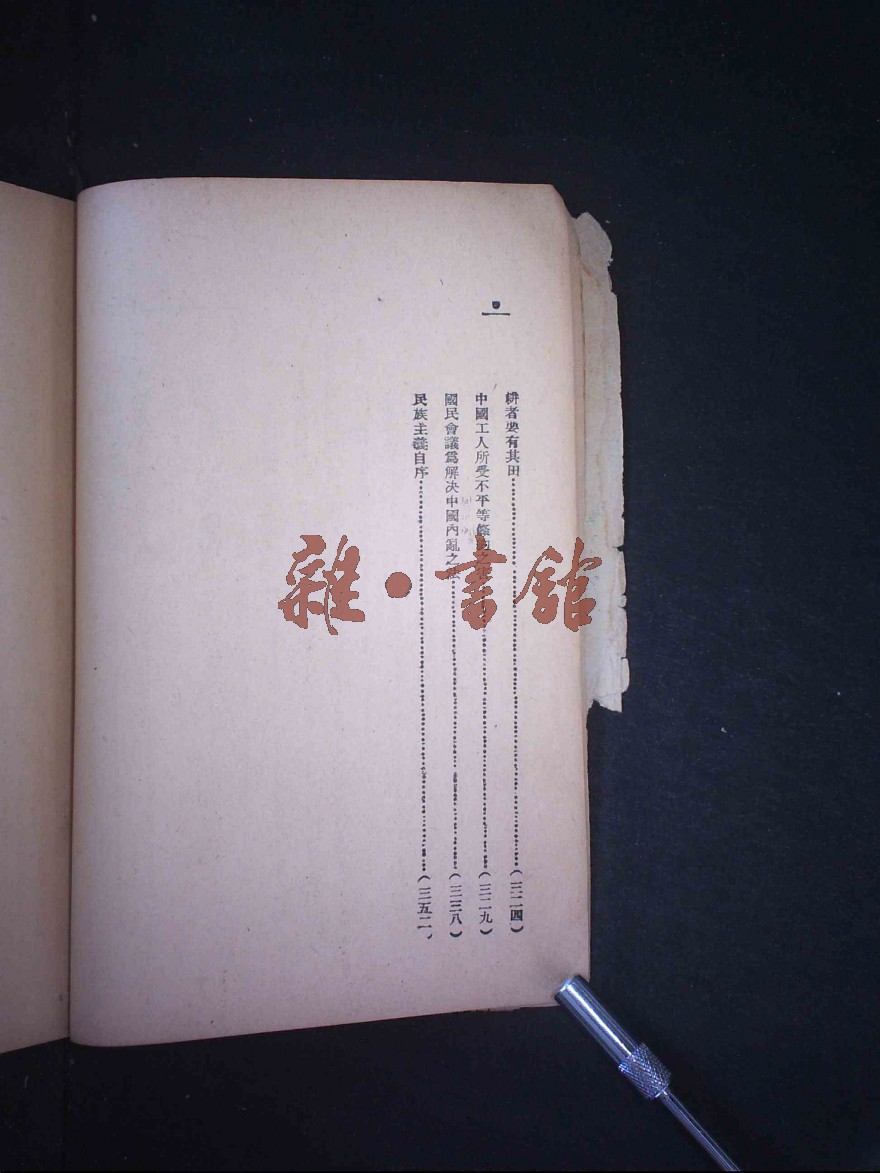 耕者要有其田……(三二四)
中國工人所受不平等條約之害……(三二九)
國民會議爲解决中國內亂之法……(三三八)
民族主義自序……(三五二)
雜·書舘